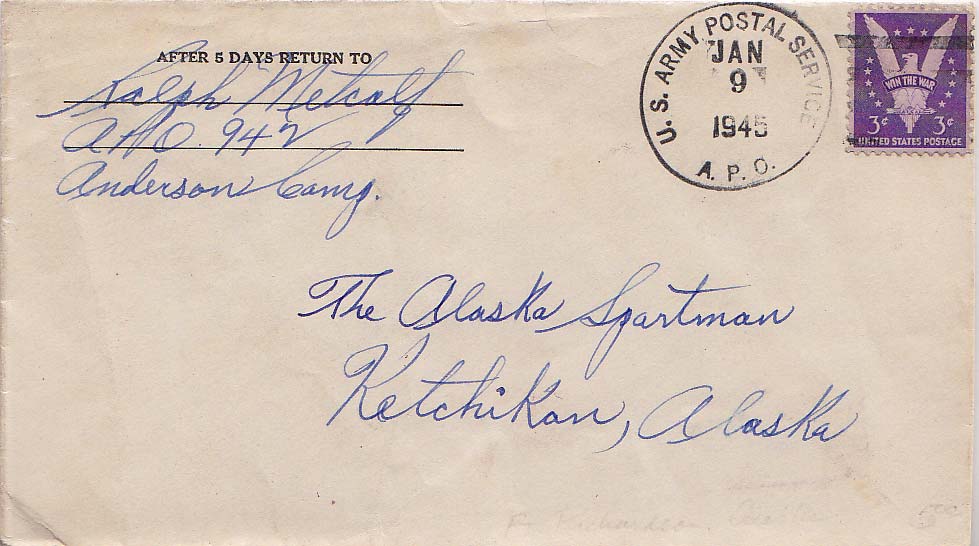 AFTER 5 DAYS RETURN TO
Ralph Metcalf
APO. 942
Anderson Camp.
U.S. ARMY POSTAL SERVICE
JAN
9
1945
A.P.O.
WIN THE WAR
3¢ 3¢
UNITED STATES POSTAGE
The Alaska Sportman
Ketchikan, Alaska
F Richardson
5⁰⁰